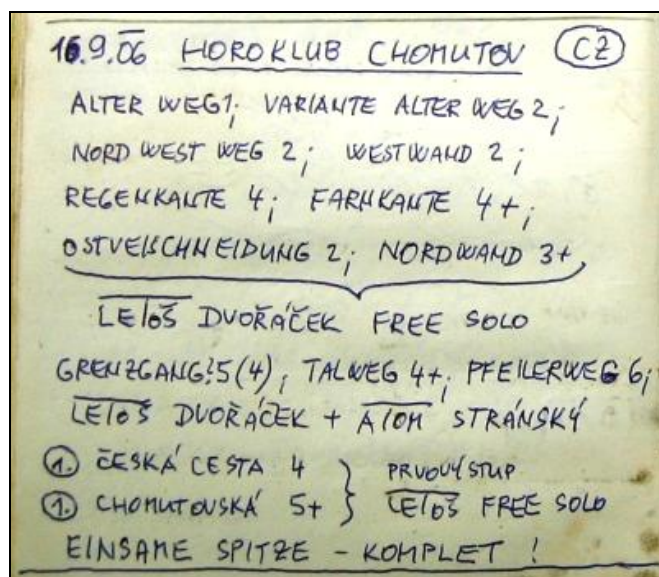 16.9.06 HOROKLUB CHOMUTOV CZ
ALTER WEG 1; VARIANTE ALTER WEG 2;
NORD WEST WEG 2; WESTWAND 2;
REGENKANTE 4; FARNKANTE 4+;
OSTVERSCHNEIDUNG 2; NORDWAND 3+,
LETOŠ DVOŘÁČEK FREE SOLO
GRENZGANG: 5(4); TALWEG 4+; PFEILERWEG 6;
LETOŠ DVOŘÁČEK + ATOM STRÁNSKÝ
1. ČESKÁ CESTA 4 } PRVOVÝSTUP
1. CHOMUTOVSKÁ 5+ } LETOŠ FREE SOLO
EINSAME SPITZE – KOMPLET !